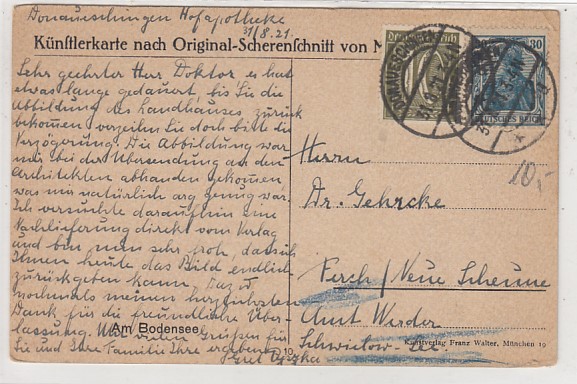 Donaueschingen Hofapotheke
31/8.21.
Künstlerkarte nach Original-Scherenschnitt von M
Sehr geehrter Herr Doktor es hat
etwas lange gedauert, bis Sie die
Abbildung des Landhauses zurück
bekommen verzeihen Sie doch bitte die
Verzögerung. Die Abbildung war
mir bei der Übersendung an den
Architekten abhanden gekommen,
was mir natürlich arg genug war.
Ich versuchte daraufhin eine
Nachlieferung direkt vom Verlag
und bin nun sehr froh, dass ich
Ihnen heute das Bild endlich
zurückgeben kann. Dazu
nochmals meinen herzlichsten
Dank für die freundliche Über-
lassung. Mit vielen Grüßen für
Sie und Ihre Familie Ihre ergebene
Am Bodensee
10
DONAUESCHINGEN
30
DEUTSCHES REICH
10,-
Herrn
Dr. Gehrcke
Ferch / Neue Scheune
Amt Werder
Schwielow-See
Kunstverlag Franz Walter, München 19